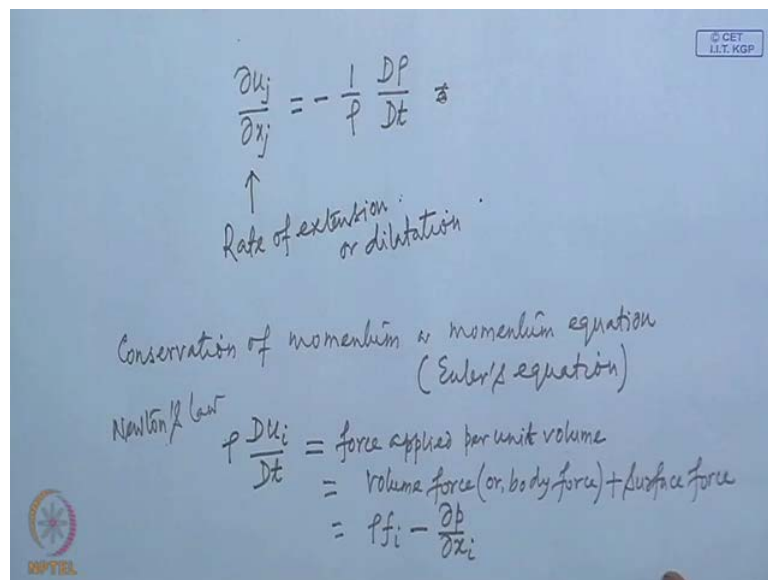 © CET
I.I.T. KGP
∂u_j/∂x_j = - 1/ρ Dρ/Dt
↑
Rate of extension
or dilatation
Conservation of momentum or momentum equation
(Euler's equation)
Newton's Law
ρ Du_i/Dt = force applied per unit volume
= volume force (or, body force) + surface force
= ρf_i - ∂p/∂x_i
NPTEL